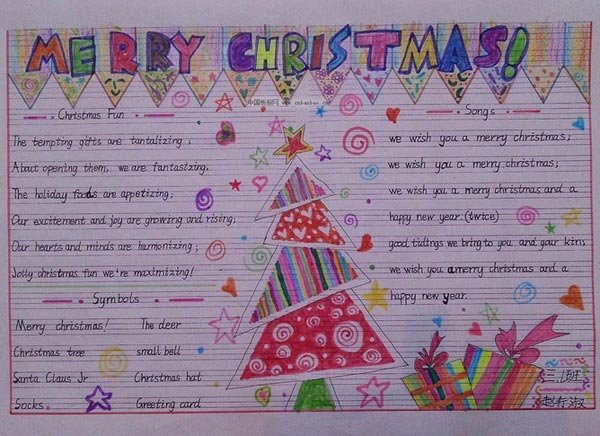 MERRY CHRISTMAS!
中国板报网 www.cnbanbao.com
Christmas Fun
The tempting gifts are tantalizing ;
About opening them, we are fantasizing.
The holiday foods are appetizing ;
Our excitement and joy are growing and rising;
Our hearts and minds are harmonizing ;
Jolly christmas fun we're maximizing!
Symbols
Merry christmas! The deer
Christmas tree small bell
Santa Claus Jr Christmas hat
Socks Greeting card
Songs
we wish you a merry christmas;
we wish you a merry christmas;
we wish you a merry christmas and a
happy new year.(twice)
good tidings we bring to you and your kin;
we wish you a merry christmas and a
happy new year.
三.1班